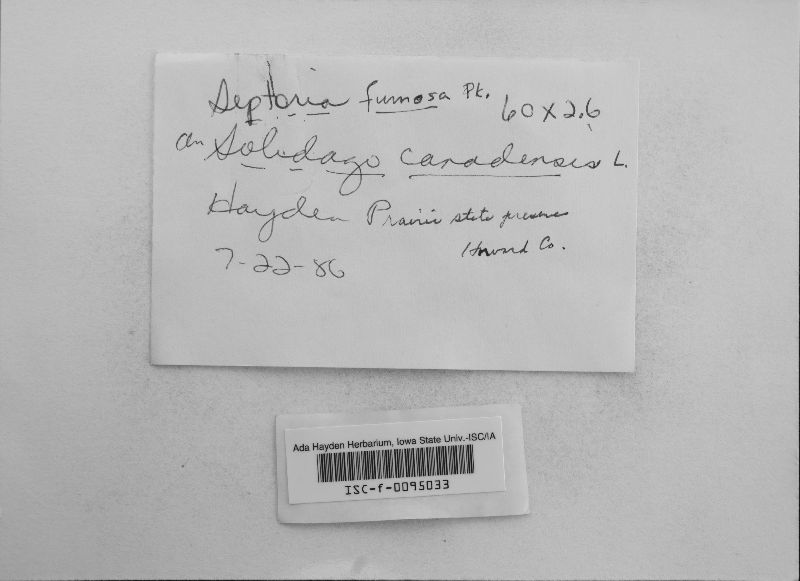 Septoria fumosa Pk. 60 x 2.6
on Solidago canadensis L.
Hayden Prairie state preserve
Howard Co.
7-22-86
Ada Hayden Herbarium, Iowa State Univ.-ISC/IA
ISC-f-0095033